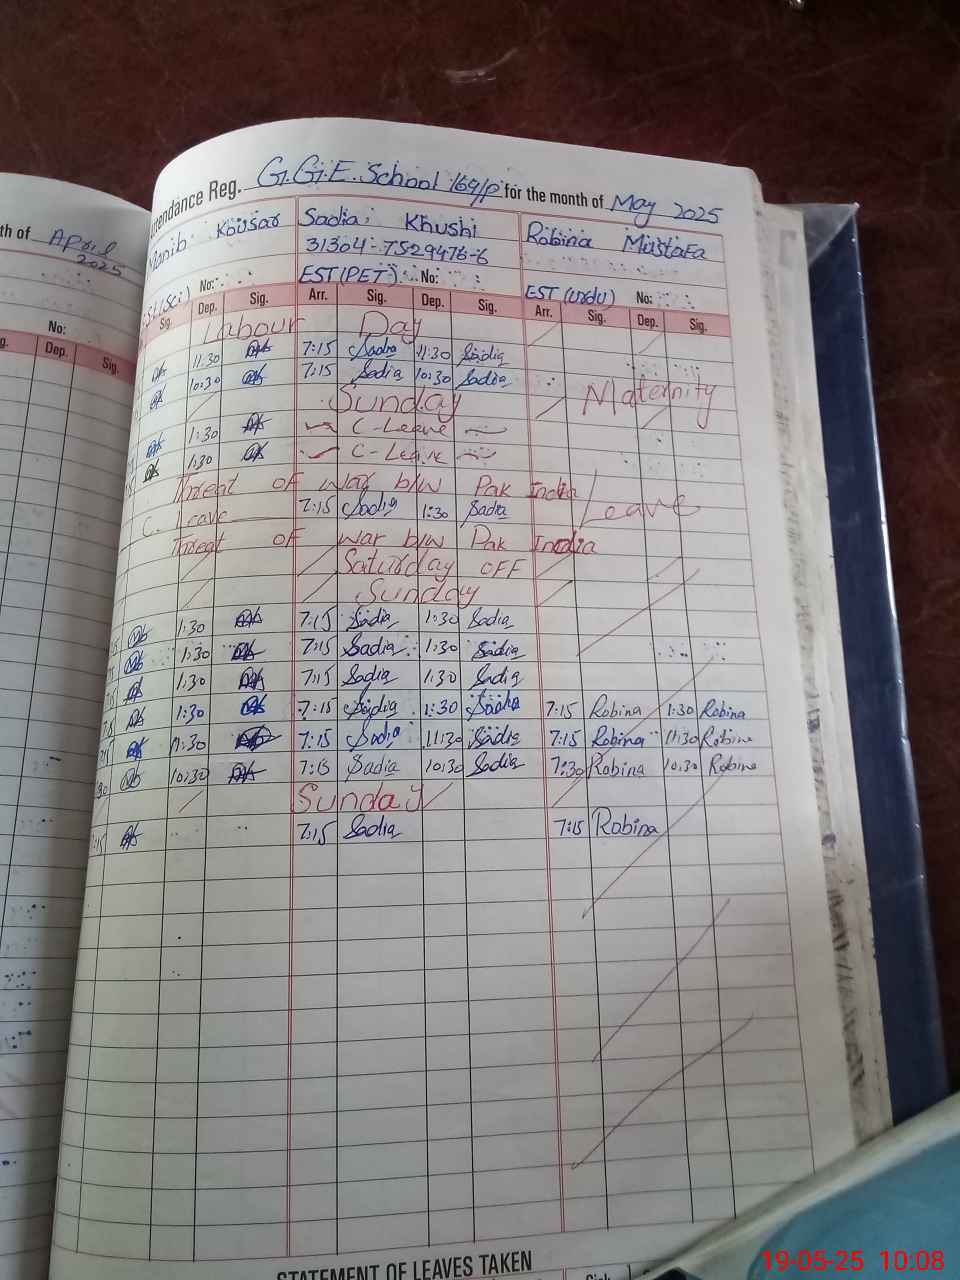 th of April
2025
No:
Dep. Sig.
Attendance Reg. G.G.E. School 169/P for the month of May 2025
Kousar Sadia Khushi Robina Mustafa
31304-7529476-6
No: EST (PET) No: EST (Urdu) No:
Sig. Dep. Sig. Arr. Sig. Dep. Sig. Arr. Sig. Dep. Sig.
Labour Day
11:30 7:15 Sadia 11:30 Sadia
10:30 7:15 Sadia 10:30 Sadia
Sunday Maternity
1:30 C-Leave
1:30 C-Leave
Threat OF War b/w Pak India
C. Leave 7:15 Sadia 1:30 Sadia Leave
Threat OF War b/w Pak India
Saturday OFF
Sunday
1:30 7:15 Sadia 1:30 Sadia
1:30 7:15 Sadia 1:30 Sadia
1:30 7:15 Sadia 1:30 Sadia
1:30 7:15 Sadia 1:30 Sadia 7:15 Robina 1:30 Robina
11:30 7:15 Sadia 11:30 Sadia 7:15 Robina 11:30 Robina
10:30 7:15 Sadia 10:30 Sadia 7:30 Robina 10:30 Robina
Sunday
7:15 Sadia 7:15 Robina
STATEMENT OF LEAVES TAKEN
19-05-25 10:08